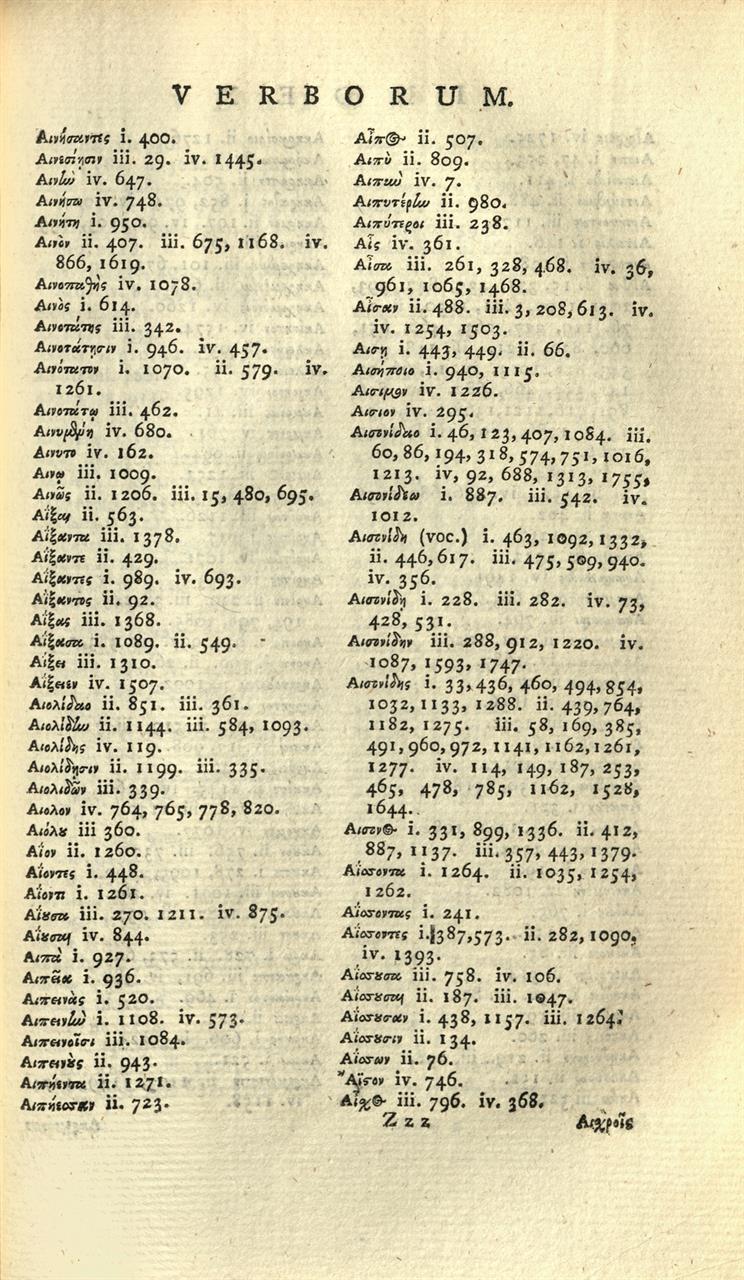 VERBORUM.
Αινήσαντες i. 400.
Αινεσίησιν iii. 29. iv. 1445.
Αινὴν iv. 647.
Αινήσω iv. 748.
Αινήτη i. 950.
Αινὸν ii. 407. iii. 675, 1168. iv.
866, 1619.
Αινοπαθὴς iv. 1078.
Αινὸς i. 614.
Αινοτάτης iii. 342.
Αινοτάτησιν i. 946. iv. 457.
Αινότατον i. 1070. ii. 579. iv.
1261.
Αινοτάτῳ iii. 462.
Αινυμένη iv. 680.
Αινυτο iv. 162.
Αινῳ iii. 1009.
Αινῶς ii. 1206. iii. 15, 480, 695.
Αΐξαι ii. 563.
Αΐξαντα iii. 1378.
Αΐξαντε ii. 429.
Αΐξαντες i. 989. iv. 693.
Αΐξαντος ii. 92.
Αΐξας iii. 1368.
Αΐξασα i. 1089. ii. 549.
Αΐξει iii. 1310.
Αΐξειεν iv. 1507.
Αιολίδαο ii. 851. iii. 361.
Αιολίδην ii. 1144. iii. 584, 1093.
Αιολίδης iv. 119.
Αιολίδησιν ii. 1199. iii. 335.
Αιολιδῶν iii. 339.
Αιολον iv. 764, 765, 778, 820.
Αιόλου iii 360.
Αἶον ii. 1260.
Αΐοντες i. 448.
Αΐοντι i. 1261.
Αΐουσα iii. 270. 1211. iv. 875.
Αΐουσαι iv. 844.
Αιπὰ i. 927.
Αιπεῖα i. 936.
Αιπεινὰς i. 520.
Αιπεινὴν i. 1108. iv. 573.
Αιπεινοῖσι iii. 1084.
Αιπεινοὺς ii. 943.
Αιπήεντα ii. 1271.
Αιπήεσσαν ii. 723.
Αἶπος ii. 507.
Αιπὺ ii. 809.
Αιπὺν iv. 7.
Αιπυτέρην ii. 980.
Αιπύτεροι iii. 238.
Αἶς iv. 361.
Αἶσα iii. 261, 328, 468. iv. 36,
961, 1065, 1468.
Αἶσαν ii. 488. iii. 3, 208, 613. iv.
iv. 1254, 1503.
Αιση i. 443, 449. ii. 66.
Αισήποιο i. 940, 1115.
Αισιμον iv. 1226.
Αισιον iv. 295.
Αισονίδαο i. 46, 123, 407, 1084. iii.
60, 86, 194, 318, 574, 751, 1016,
1213. iv, 92, 688, 1313, 1755,
Αισονίδεω i. 887. iii. 542. iv.
1012.
Αισονίδη (voc.) i. 463, 1092, 1332,
ii. 446, 617. iii. 475, 509, 940.
iv. 356.
Αισονίδη i. 228. iii. 282. iv. 73,
428, 531.
Αισονίδην iii. 288, 912, 1220. iv.
1087, 1593, 1747.
Αισονίδης i. 33, 436, 460, 494, 854,
1032, 1133, 1288. ii. 439, 764,
1182, 1275. iii. 58, 169, 385,
491, 960, 972, 1141, 1162, 1261,
1277. iv. 114, 149, 187, 253,
465, 478, 785, 1162, 1528,
1644.
Αισονος i. 331, 899, 1336. ii. 412,
887, 1137. iii. 357, 443, 1379.
Αΐσσοντα i. 1264. ii. 1035, 1254,
1262.
Αΐσσοντας i. 241.
Αΐσσοντες i. 387, 573. ii. 282, 1090,
iv. 1393.
Αΐσσουσα iii. 758. iv. 106.
Αΐσσουσαι ii. 187. iii. 1047.
Αΐσσουσαν i. 438, 1157. iii. 1264.
Αΐσσουσιν ii. 134.
Αΐσσων ii. 76.
Ἄϊστον iv. 746.
Αἶχος iii. 796. iv. 368.
Zzz Αισχροῖς